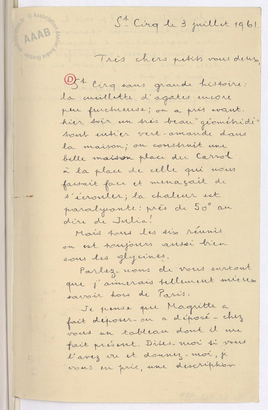 St Cirq le 3 juillet 1961.
Très chers petits vous deux,
① St Cirq sans grande histoire :
la cueillette d'agates encore
peu fructueuse ; on a pris avant-
hier soir un très beau "géométridé"
tout entier vert-amande dans
la maison ; on construit une
belle maison place du Carrol
à la place de celle qui nous
faisait face et menaçait de
s'écrouler ; la chaleur est
paralysante : près de 50° au
dire de Julia !
Mais tous les six réunis
on est toujours aussi bien
sous les glycines.
Parlez-nous de vous surtout
que j'aimerais tellement mieux
savoir hors de Paris.
Je pense que Magritte a
fait déposer - ou a déposé - chez
vous un tableau dont il me
fait présent. Dites-moi si vous
l'avez vu et donnez-moi, je
vous en prie, une description
AAAB